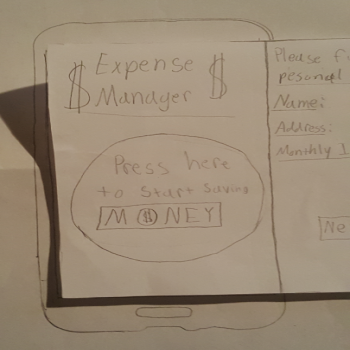 $ Expense $
Manager
Press here
to start saving
M$NEY
Please
pesonal
Name:
Address:
Monthly